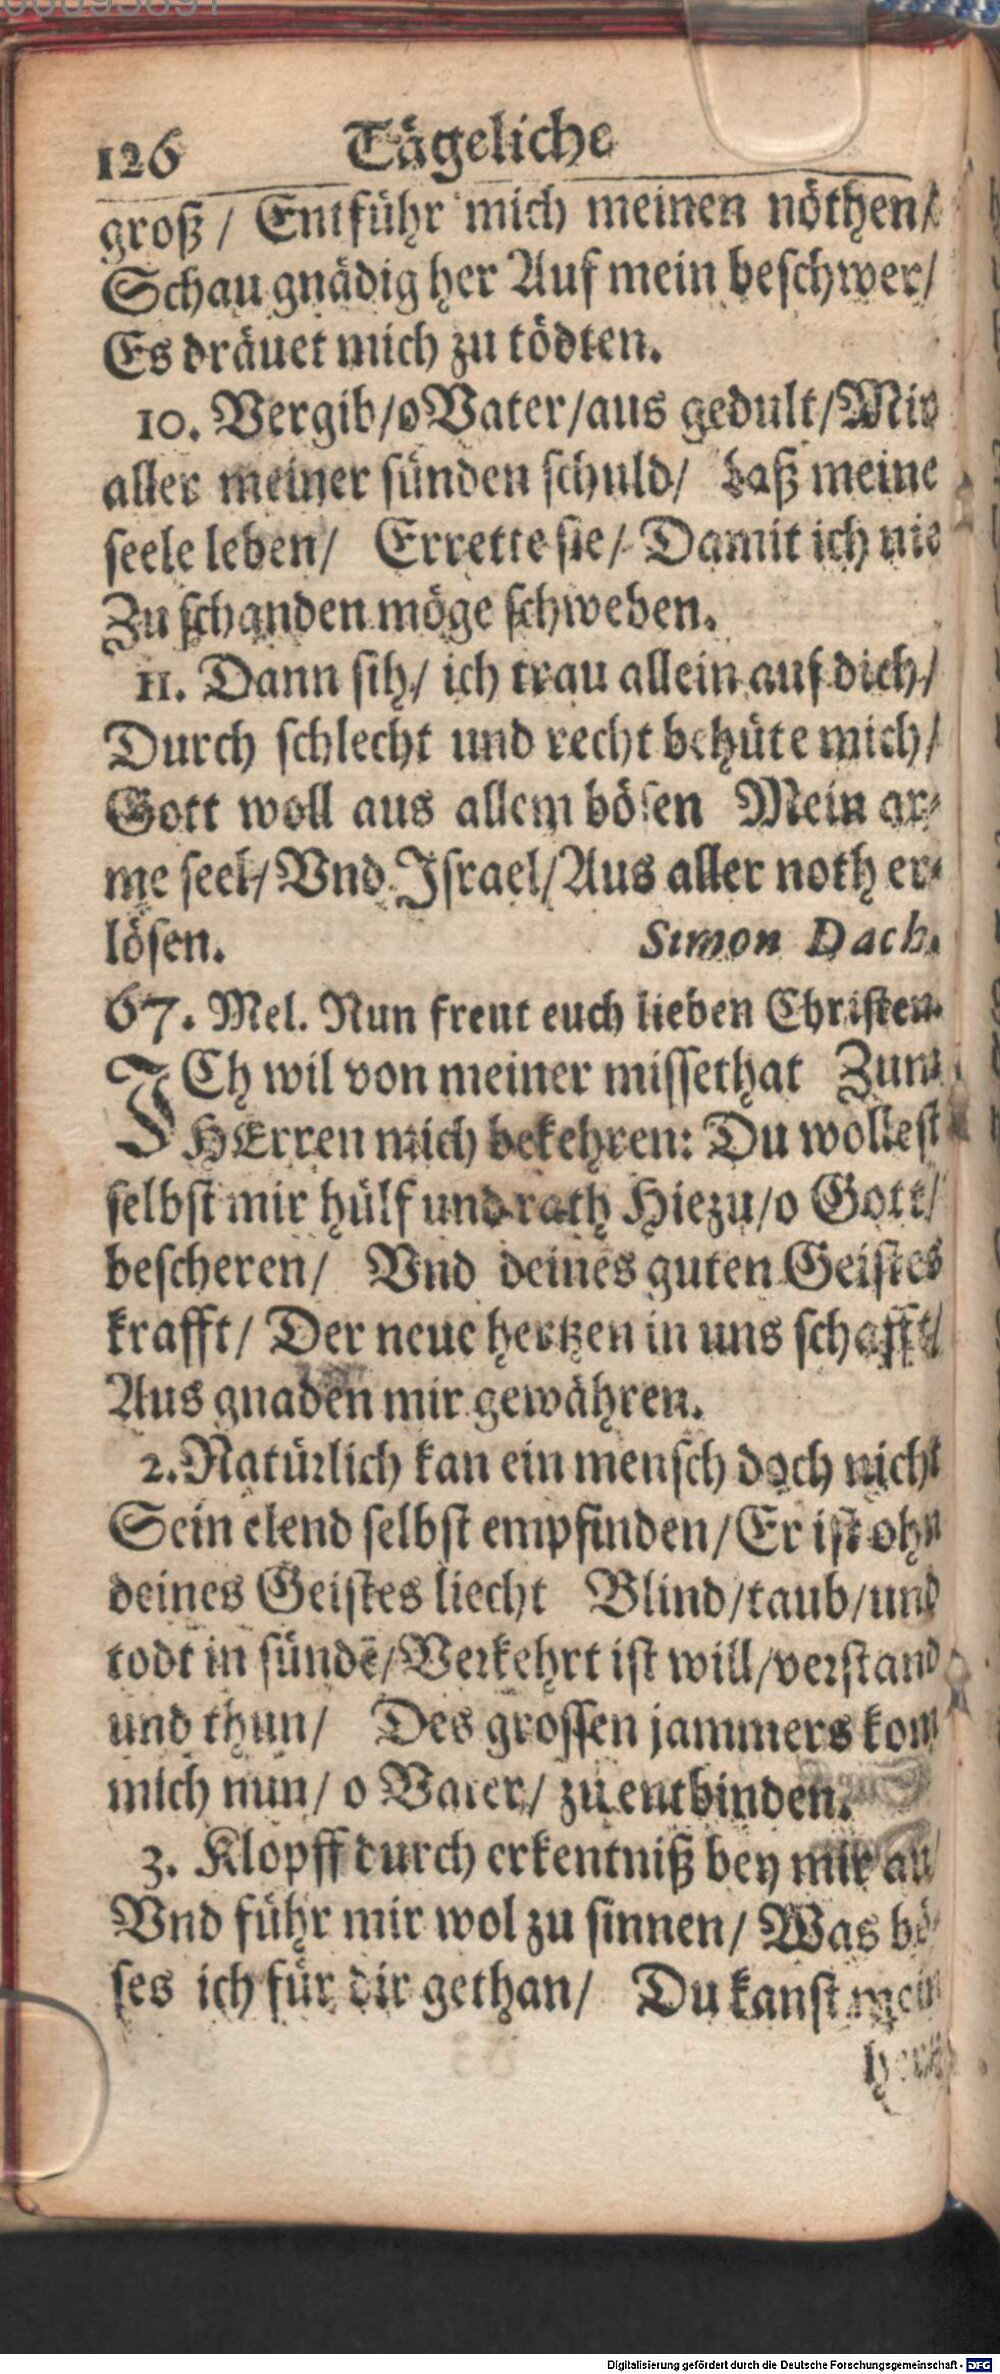 126 Tägeliche
groß / Entführ mich meinen nöthen/
Schau gnädig her Auf mein beschwer/
Es dräuet mich zu tödten.
10. Vergib/o Vater/aus gedult/Mir
aller meiner sünden schuld/ Laß meine
seele leben/ Errette sie/ Damit ich nie
Zu schanden möge schweben.
11. Dann sih/ ich trau allein auf dich/
Durch schlecht und recht behüte mich/
Gott woll aus allem bösen Mein ar-
me seel/ Vnd Israel/Aus aller noth er-
lösen. Simon Dach.
67. Mel. Nun freut euch lieben Christen.
ICh wil von meiner missethat Zum
HErren mich bekehren: Du wollest
selbst mir hülf und rath Hiezu/o Gott/
bescheren/ Vnd deines guten Geistes
krafft/ Der neue hertzen in uns schafft/
Aus gnaden mir gewähren.
2. Natürlich kan ein mensch doch nicht
Sein elend selbst empfinden/Er ist ohn
deines Geistes liecht Blind/taub/und
todt in sündē/Verkehrt ist will/verstand
und thun/ Des grossen jammers kom
mich nun/ o Vater/ zu entbinden.
3. Klopff durch erkentniß bey mir an/
Vnd führ mir wol zu sinnen/ Was bö-
ses ich für dir gethan/ Du kanst mein
Digitalisierung gefördert durch die Deutsche Forschungsgemeinschaft - DFG